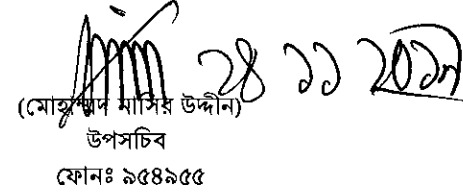 ২৪ ১১ ২০১৭
(মোহাম্মদ নাসির উদ্দীন)
উপসচিব
ফোনঃ ৯৫৪৯৫৫